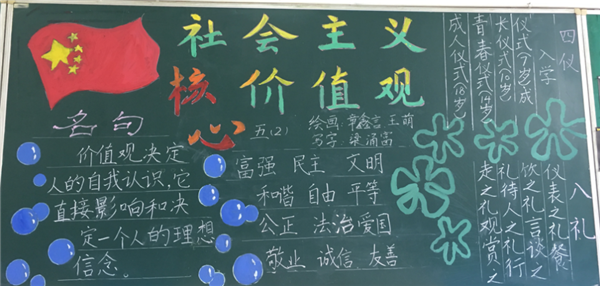 社会主义
核价值观
心
五(2)
绘画:章鑫言 王萌
写字:梁涌富
名句
价值观决定
人的自我认识,它
直接影响和决
定一个人的理想
信念。
富强 民主 文明
和谐 自由 平等
公正 法治 爱国
敬业 诚信 友善
四仪
入学
仪式(7岁)成
长仪式(10岁)
青春仪式(14岁)
成人仪式(18岁)
八礼
仪表之礼餐
饮之礼言谈之
礼待人之礼行
走之礼观赏之